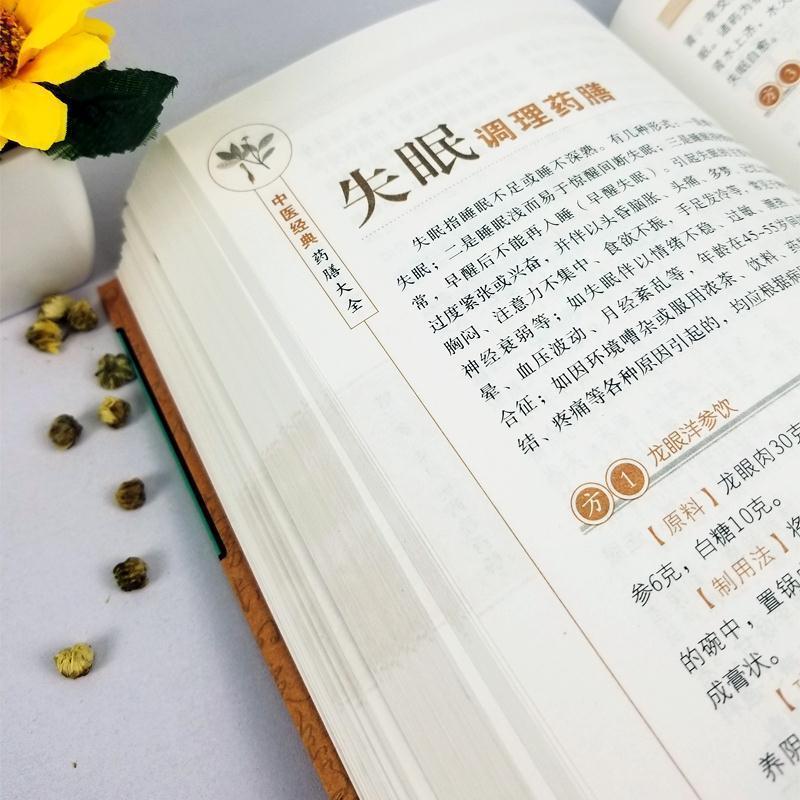 中医经典
药膳大全
失眠调理药膳
失眠指睡眠不足或睡不深熟。有几种形式：一
失眠；二是睡眠浅而易于惊醒间断失眠；三是睡眠
常，早醒后不能再入睡（早醒失眠）。引起失眠的
过度紧张或兴奋，并伴以头昏脑胀、头痛、多梦、
胸闷、注意力不集中、食欲不振，手足发冷等，
神经衰弱等；如失眠伴以情绪不稳、过敏、潮热、
晕、血压波动、月经紊乱等，年龄在45~55岁
合征；如因环境嘈杂或服用浓茶、饮料、
结、疼痛等各种原因引起的，均应根据病
方1 龙眼洋参饮
【原料】龙眼肉30克
参6克，白糖10克。
【制用法】将
的碗中，置锅
成膏状。
养阴
方3